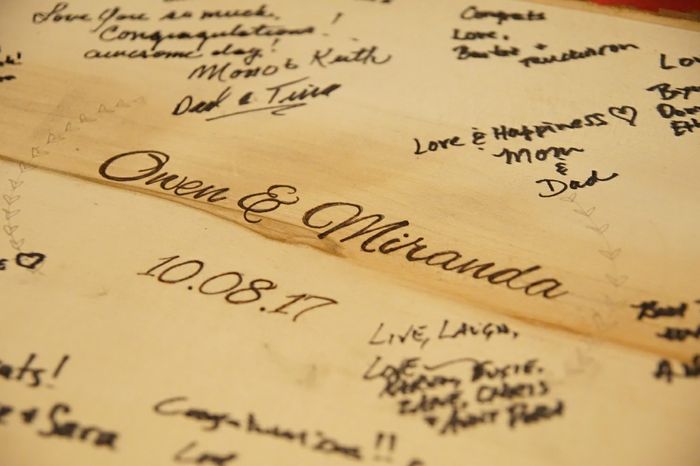 Love you so much. !
Congragulations!
awesome day!
Mom & Keith
Dad & Tina
Congrats
Love,
Lov
Love & Happiness ♡
Mom
&
Dad
Owen & Miranda
10.08.17
♡
Live, Laugh,
Love
Zane, Chris
& Aunt
ats!
& Sara
Congratulations!!
Love